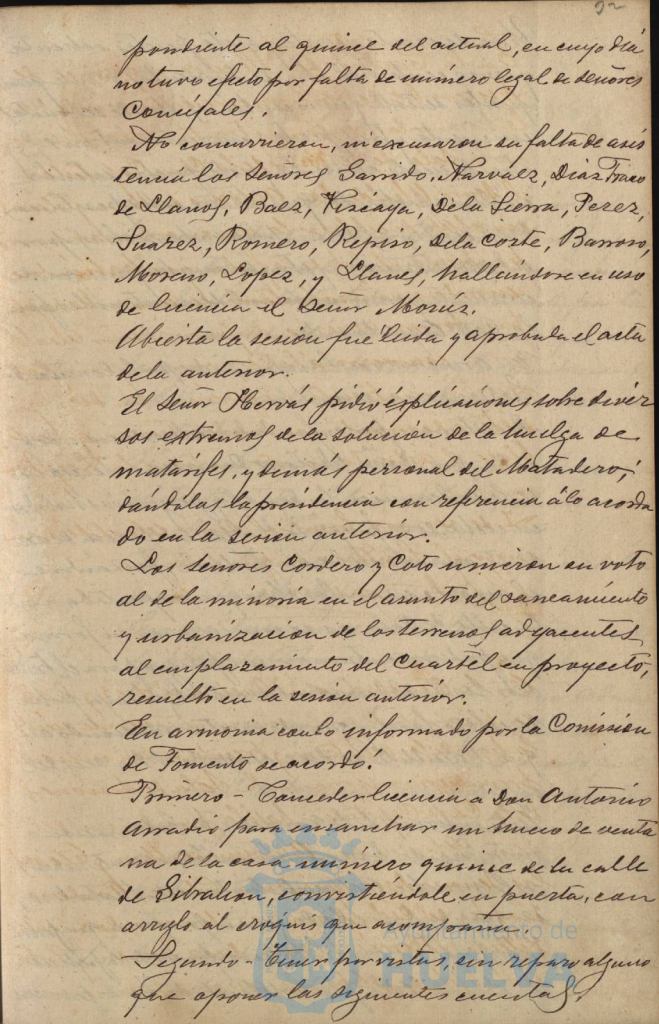 32
pondiente al quince del actual, en cuyo día
no tuvo efecto por falta de número legal de señores
Concejales.
No concurrieron, ni excusaron su falta de asis
tencia los Señores Garrido, Narvaez, Diaz Franco
de Llanos, Baez, Vizcaya, De la Sierra, Perez,
Suarez, Romero, Repiso, de la Corte, Barroso,
Moreno, Lopez, y Llanes, hallándose en uso
de licencia el Señor
Abierta la sesión fue leida y aprobada el acta
de la anterior.
El Señor Hervás pidió esplicaciones sobre diver
sos extremos de la solución de la huelga de
matarifes, y demás personal del Matadero;
dándolas la presidencia con referencia á lo acorda
do en la sesión anterior.
Los Señores Cordero y Coto unieron su voto
al de la minoría en el asunto del saneamiento
y urbanización de los terrenos adyacentes
al emplazamiento del Cuartel en proyecto,
resuelto en la sesión anterior.
En armonia con lo informado por la Comisión
de Fomento se acordó:
Primero - Conceder licencia á Don Antonio
para ensanchar un hueco de venta
na de la casa número quince de la calle
de Gibraleon, convirtiéndole en puerta, con
arreglo al cróquis que acompaña.
Segundo - Tener por vistas, sin reparo alguno
que oponer las siguientes cuentas,
Ayuntamiento de
HUELVA